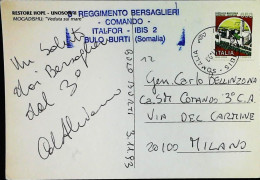 RESTORE HOPE - UNOSOM
MOGADISHU "Veduta sul mare"
3° REGGIMENTO BERSAGLIERI
- COMANDO -
ITALFOR - IBIS 2
BULO BURTI (Somalia)
Un Saluto
dai Bersaglieri
del 3°
BULO BURTI
3.11.93
Gen. Carlo DELLINZONA
Ca.SM COMANDO 3° C.A
VIA DEL CARMINE
20100 MILANO